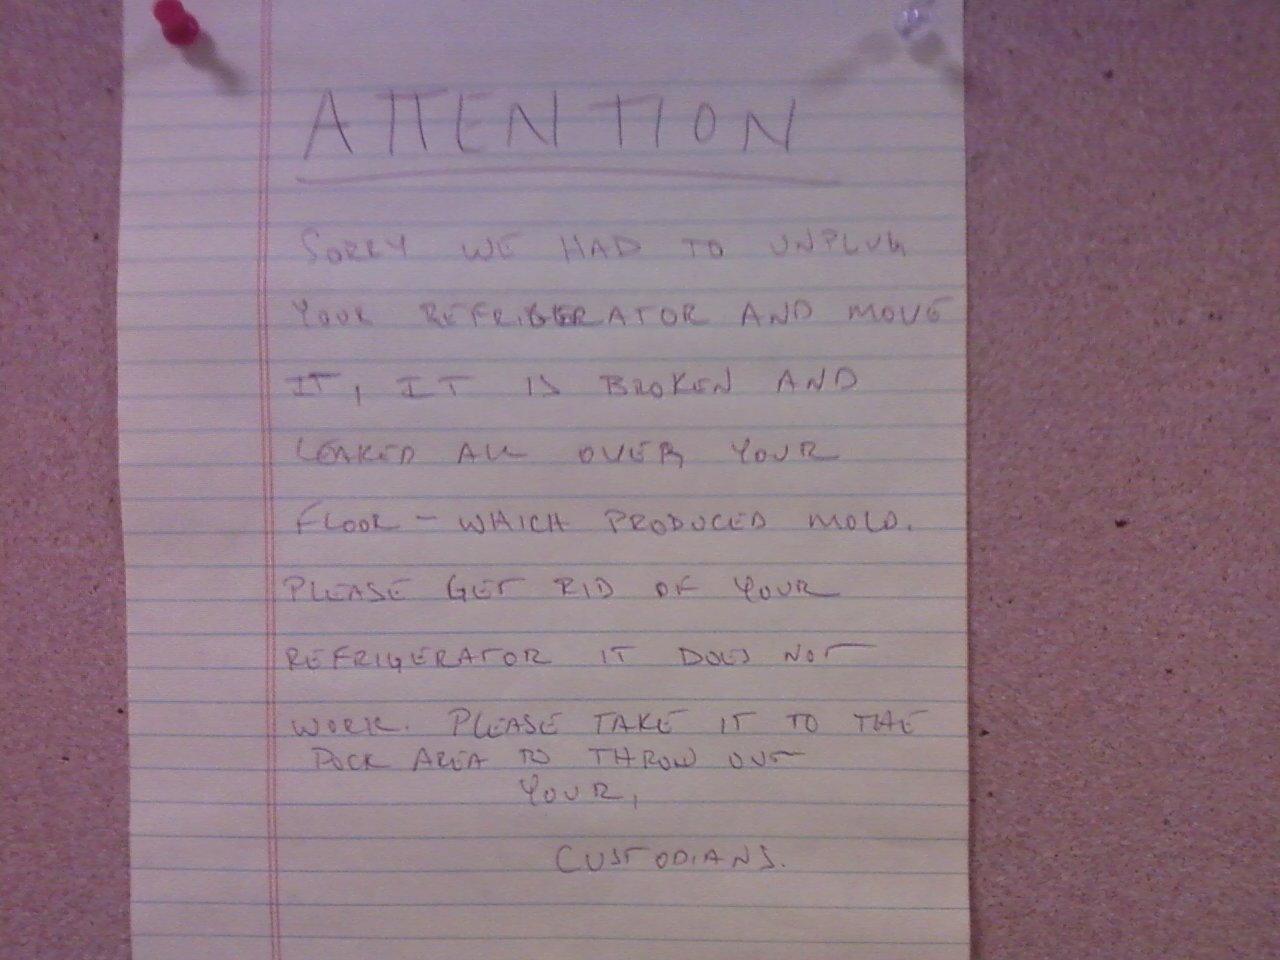 ATTENTION
SORRY WE HAD TO UNPLUG
YOUR REFRIGERATOR AND MOVE
IT, IT IS BROKEN AND
LEAKED ALL OVER YOUR
FLOOR - WHICH PRODUCED MOLD.
PLEASE GET RID OF YOUR
REFRIGERATOR IT DOES NOT
WORK. PLEASE TAKE IT TO THE
DOCK AREA TO THROW OUT
YOUR,
CUSTODIANS.